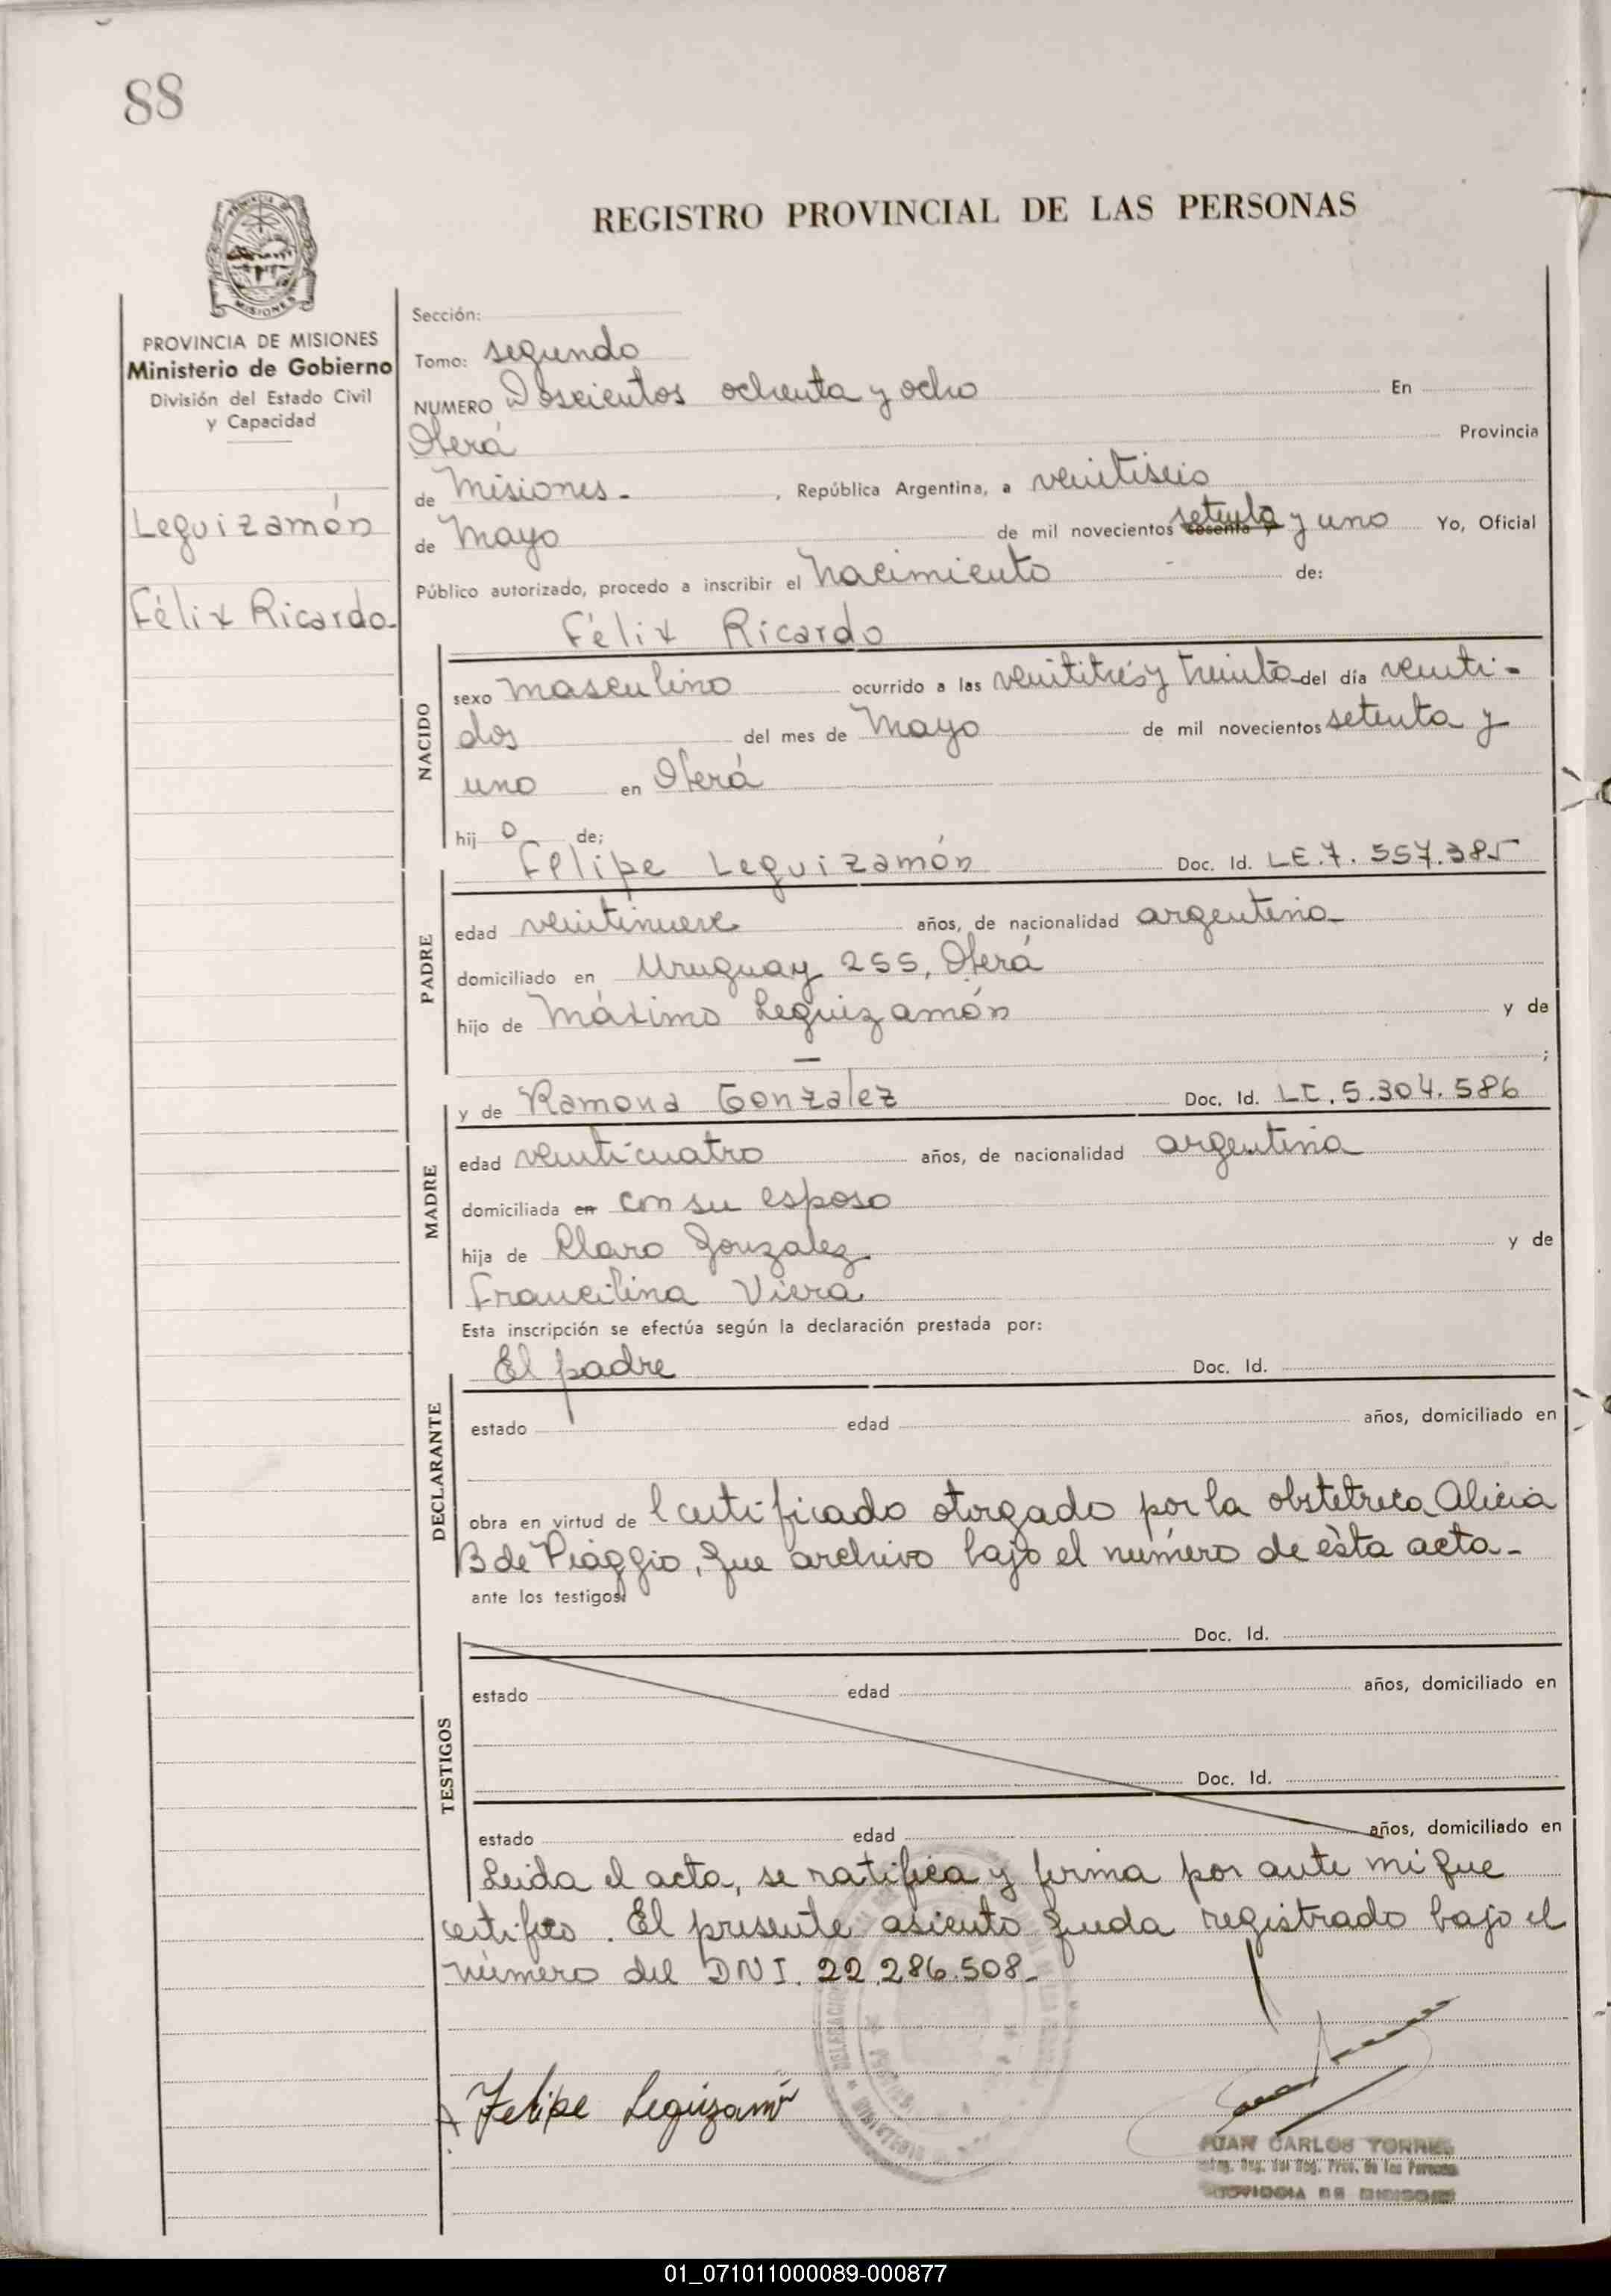 88
REGISTRO PROVINCIAL DE LAS PERSONAS
PROVINCIA DE MISIONES
Ministerio de Gobierno
División del Estado Civil
y Capacidad
Leguizamón
Félix Ricardo-
Sección:
Tomo: segundo
NUMERO Doscientos ochenta y ocho En
Oberá Provincia
de Misiones- , República Argentina, a veintiseis
de Mayo de mil novecientos setenta y uno Yo, Oficial
Público autorizado, procedo a inscribir el nacimiento de:
Félix Ricardo
NACIDO
sexo masculino ocurrido a las veintitrés y treinta del día veinti-
dos del mes de Mayo de mil novecientos setenta y
uno en Oberá
hij o de;
Felipe Leguizamón Doc. Id. L.E.7.557.385
PADRE
edad veintinueve años, de nacionalidad argentina
domiciliado en Uruguay 255, Oberá
hijo de Máximo Leguizamón y de
— ;
y de Ramona Gonzalez Doc. Id. L.C.5.304.586
MADRE
edad veinticuatro años, de nacionalidad argentina
domiciliada en con su esposo
hija de Claro Gonzalez y de
Francilina Viera
Esta inscripción se efectúa según la declaración prestada por:
El padre Doc. Id.
DECLARANTE
estado edad años, domiciliado en
obra en virtud de l certificado otorgado por la obstetrica Alicia
B de Piaggio, que archivo bajo el número de ésta acta-
ante los testigos:
TESTIGOS
Doc. Id.
estado edad años, domiciliado en
Doc. Id.
estado edad años, domiciliado en
Leida el acta, se ratifica y firma por ante mi que
certifico. El presente asiento queda registrado bajo el
número del DNI. 22.286.508-
Felipe Leguizamón
JUAN CARLOS TORRES
PROVINCIA DE MISIONES
01_071011000089-000877